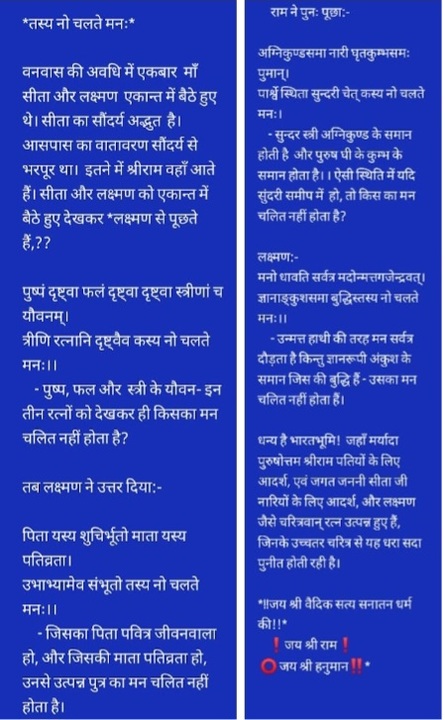 *तस्य नो चलते मनः*
वनवास की अवधि में एकबार माँ
सीता और लक्ष्मण एकान्त में बैठे हुए
थे। सीता का सौंदर्य अद्भुत है।
आसपास का वातावरण सौंदर्य से
भरपूर था। इतने में श्रीराम वहाँ आते
हैं। सीता और लक्ष्मण को एकान्त में
बैठे हुए देखकर *लक्ष्मण से पूछते
हैं,??
पुष्पं दृष्ट्वा फलं दृष्ट्वा दृष्ट्वा स्त्रीणां च
यौवनम्।
त्रीणि रत्नानि दृष्ट्वैव कस्य नो चलते
मनः।।
- पुष्प, फल और स्त्री के यौवन- इन
तीन रत्नों को देखकर ही किसका मन
चलित नहीं होता है?
तब लक्ष्मण ने उत्तर दिया:-
पिता यस्य शुचिर्भूतो माता यस्य
पतिव्रता।
उभाभ्यामेव संभूतो तस्य नो चलते
मनः।।
- जिसका पिता पवित्र जीवनवाला
हो, और जिसकी माता पतिव्रता हो,
उनसे उत्पन्न पुत्र का मन चलित नहीं
होता है।
राम ने पुनः पूछा:-
अग्निकुण्डसमा नारी घृतकुम्भसमः
पुमान्।
पार्श्वे स्थिता सुन्दरी चेत् कस्य नो चलते
मनः।
- सुन्दर स्त्री अग्निकुण्ड के समान
होती है और पुरुष घी के कुम्भ के
समान होता है।। ऐसी स्थिति में यदि
सुंदरी समीप में हो, तो किस का मन
चलित नहीं होता है?
लक्ष्मण:-
मनो धावति सर्वत्र मदोन्मत्तगजेन्द्रवत्।
ज्ञानाङ्कुशसमा बुद्धिस्तस्य नो चलते
मनः।।
- उन्मत्त हाथी की तरह मन सर्वत्र
दौड़ता है किन्तु ज्ञानरूपी अंकुश के
समान जिस की बुद्धि हैं - उसका मन
चलित नहीं होता हैं।
धन्य है भारतभूमि! जहाँ मर्यादा
पुरुषोत्तम श्रीराम पतियों के लिए
आदर्श, एवं जगत जननी सीता जी
नारियों के लिए आदर्श, और लक्ष्मण
जैसे चरित्रवान् रत्न उत्पन्न हुए हैं,
जिनके उच्चतर चरित्र से यह धरा सदा
पुनीत होती रही है।
*!!जय श्री वैदिक सत्य सनातन धर्म
की!!*
❗जय श्री राम❗
⭕जय श्री हनुमान‼️*